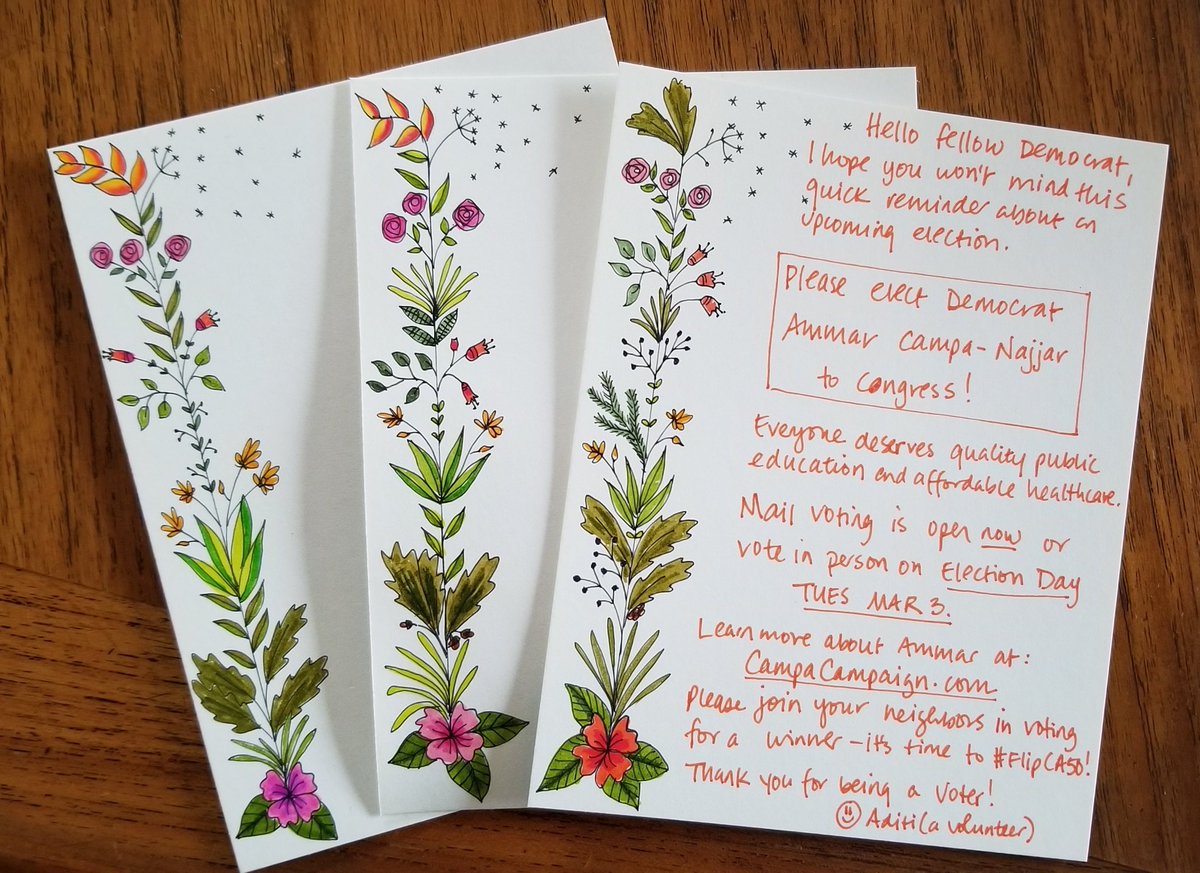 Hello fellow Democrat,
I hope you won't mind this
quick reminder about an
upcoming election.
Please elect Democrat
Ammar Campa-Najjar
to Congress!
Everyone deserves quality public
education and affordable healthcare.
Mail voting is open now or
vote in person on Election Day
TUES MAR 3.
Learn more about Ammar at:
CampaCampaign.com
Please join your neighbors in voting
for a winner - it's time to #FlipCA50!
Thank you for being a voter!
Aditi (a volunteer)